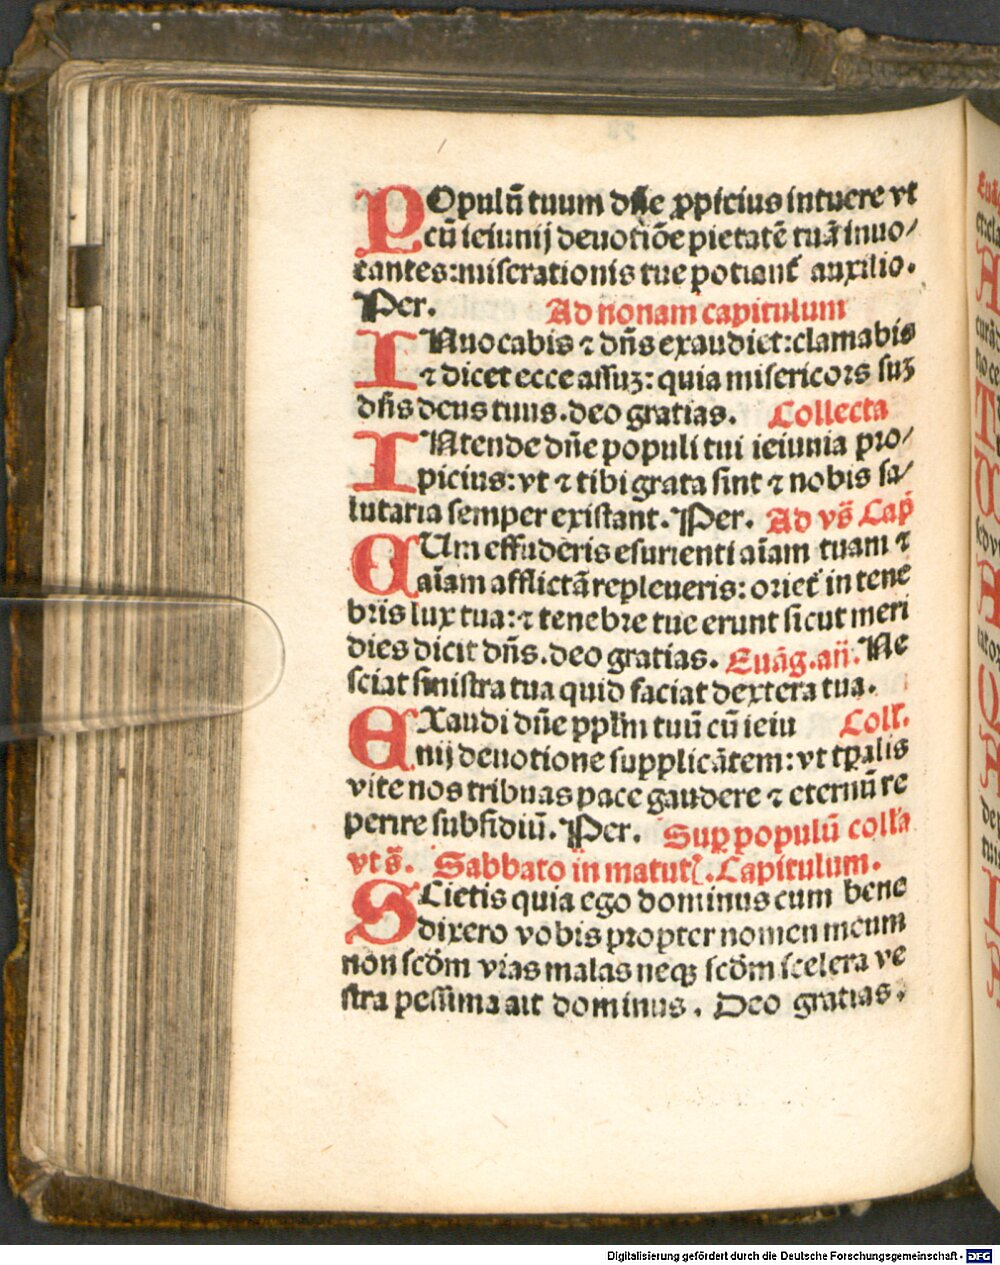 POpulū tuum dn̄e ꝓpicius intuere vt
cū ieiunij deuotiōe pietatē tuā inuo⸗
cantes:miserationis tue potiant᷑ auxilio.
Per. Ad nonam capitulum
INuocabis ⁊ dn̄s exaudiet:clamabis
⁊ dicet ecce assuꝫ: quia misericors suꝫ
dn̄s deus tuus.deo gratias. Collecta
INtende dn̄e populi tui ieiunia pro⸗
picius:vt ⁊ tibi grata sint ⁊ nobis sa⸗
lutaria semper existant. Per. Ad vs̄ Cap̄
CUm effuderis esurienti aīam tuam ⁊
aīam afflictā repleueris: oriet᷑ in tene
bris lux tua:⁊ tenebre tue erunt sicut meri
dies dicit dn̄s.deo gratias. Euāg.an̄. Ne
sciat sinistra tua quid faciat dextera tua.
EXaudi dn̄e pplm̄ tuū cū ieiu Coll̄.
nij deuotione supplicātem:vt tꝑalis
vite nos tribuas pace gaudere ⁊ eternū re
perire subsidiū. Per. Suꝑ populū coll̄a
vt s̄. Sabbato in matut᷑. Capitulum.
SCietis quia ego dominus cum bene
dixero vobis propter nomen meum
non scd̄m vias malas neqꝫ scd̄m scelera ve
stra pessima ait dominus. Deo gratias.
Digitalisierung gefördert durch die Deutsche Forschungsgemeinschaft - DFG